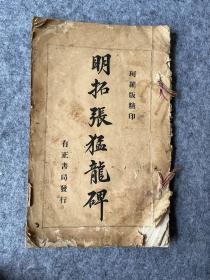 珂羅版精印
明拓張猛龍碑
有正書局發行